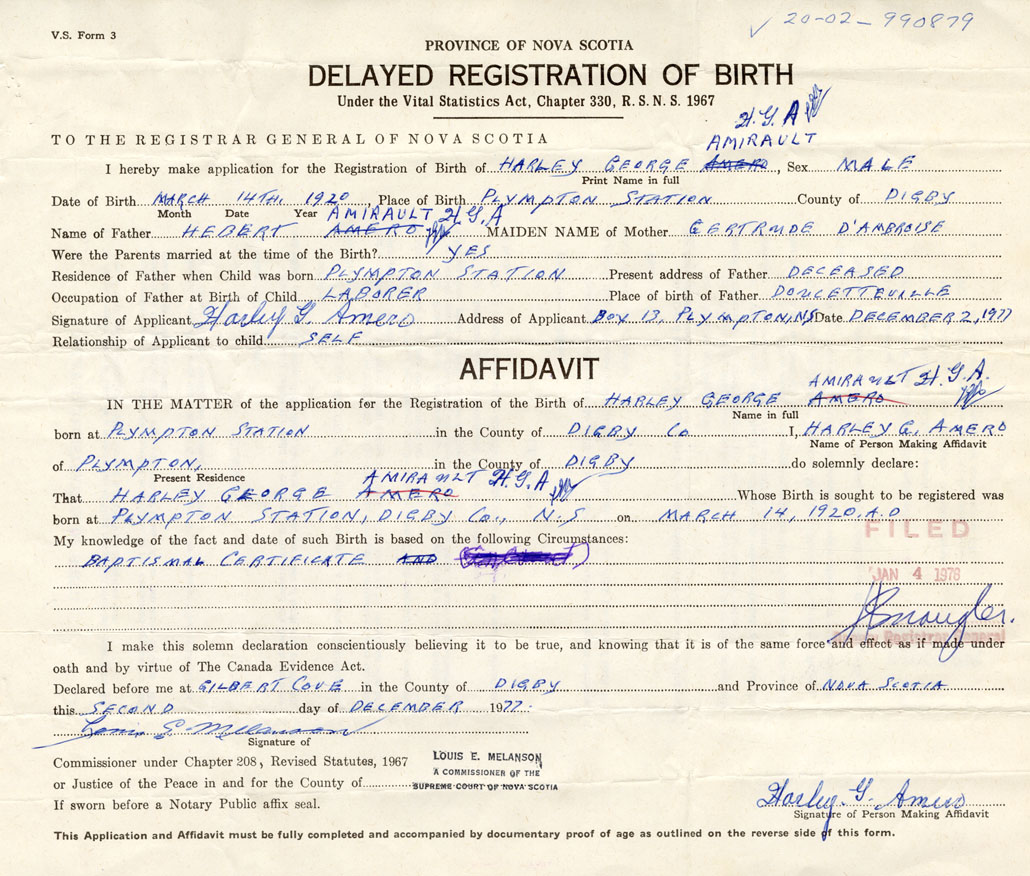 20-02-990879
V.S. Form 3
PROVINCE OF NOVA SCOTIA
DELAYED REGISTRATION OF BIRTH
Under the Vital Statistics Act, Chapter 330, R.S.N.S. 1967
H.G.A
TO THE REGISTRAR GENERAL OF NOVA SCOTIA
AMIRAULT
I hereby make application for the Registration of Birth of HARLEY GEORGE AMERO, Sex MALE
Print Name in full
Date of Birth MARCH 14TH. 1920, Place of Birth PLYMPTON STATION County of DIGBY
Month Date Year AMIRAULT H.G.A
Name of Father HEBERT AMERO MAIDEN NAME of Mother GERTRUDE D'AMBROISE
Were the Parents married at the time of the Birth? YES
Residence of Father when Child was born PLYMPTON STATION Present address of Father DECEASED
Occupation of Father at Birth of Child LABORER Place of birth of Father DOUCETTEVILLE
Signature of Applicant Harley G. Amero Address of Applicant BOX 13, PLYMPTON, NS Date DECEMBER 2, 1977
Relationship of Applicant to child SELF
AFFIDAVIT
AMIRAULT H.G.A.
IN THE MATTER of the application for the Registration of the Birth of HARLEY GEORGE AMERO
Name in full
born at PLYMPTON STATION in the County of DIGBY Co I, HARLEY G. AMERO
Name of Person Making Affidavit
of PLYMPTON, in the County of DIGBY do solemnly declare:
Present Residence AMIRAULT H.G.A,
That HARLEY GEORGE AMERO Whose Birth is sought to be registered was
born at PLYMPTON STATION, DIGBY Co., N.S on MARCH 14, 1920.A.D
FILED
My knowledge of the fact and date of such Birth is based on the following Circumstances:
BAPTISMAL CERTIFICATE AND
JAN 4 1978
I make this solemn declaration conscientiously believing it to be true, and knowing that it is of the same force and effect as if made under
oath and by virtue of The Canada Evidence Act.
Declared before me at GILBERT COVE in the County of DIGBY and Province of NOVA SCOTIA
this SECOND day of DECEMBER 1977.
Louis E. Melanson
Signature of
Commissioner under Chapter 208, Revised Statutes, 1967
LOUIS E. MELANSON
A COMMISSIONER OF THE
SUPREME COURT OF NOVA SCOTIA
or Justice of the Peace in and for the County of
If sworn before a Notary Public affix seal.
Harley. G. Amero
Signature of Person Making Affidavit
This Application and Affidavit must be fully completed and accompanied by documentary proof of age as outlined on the reverse side of this form.